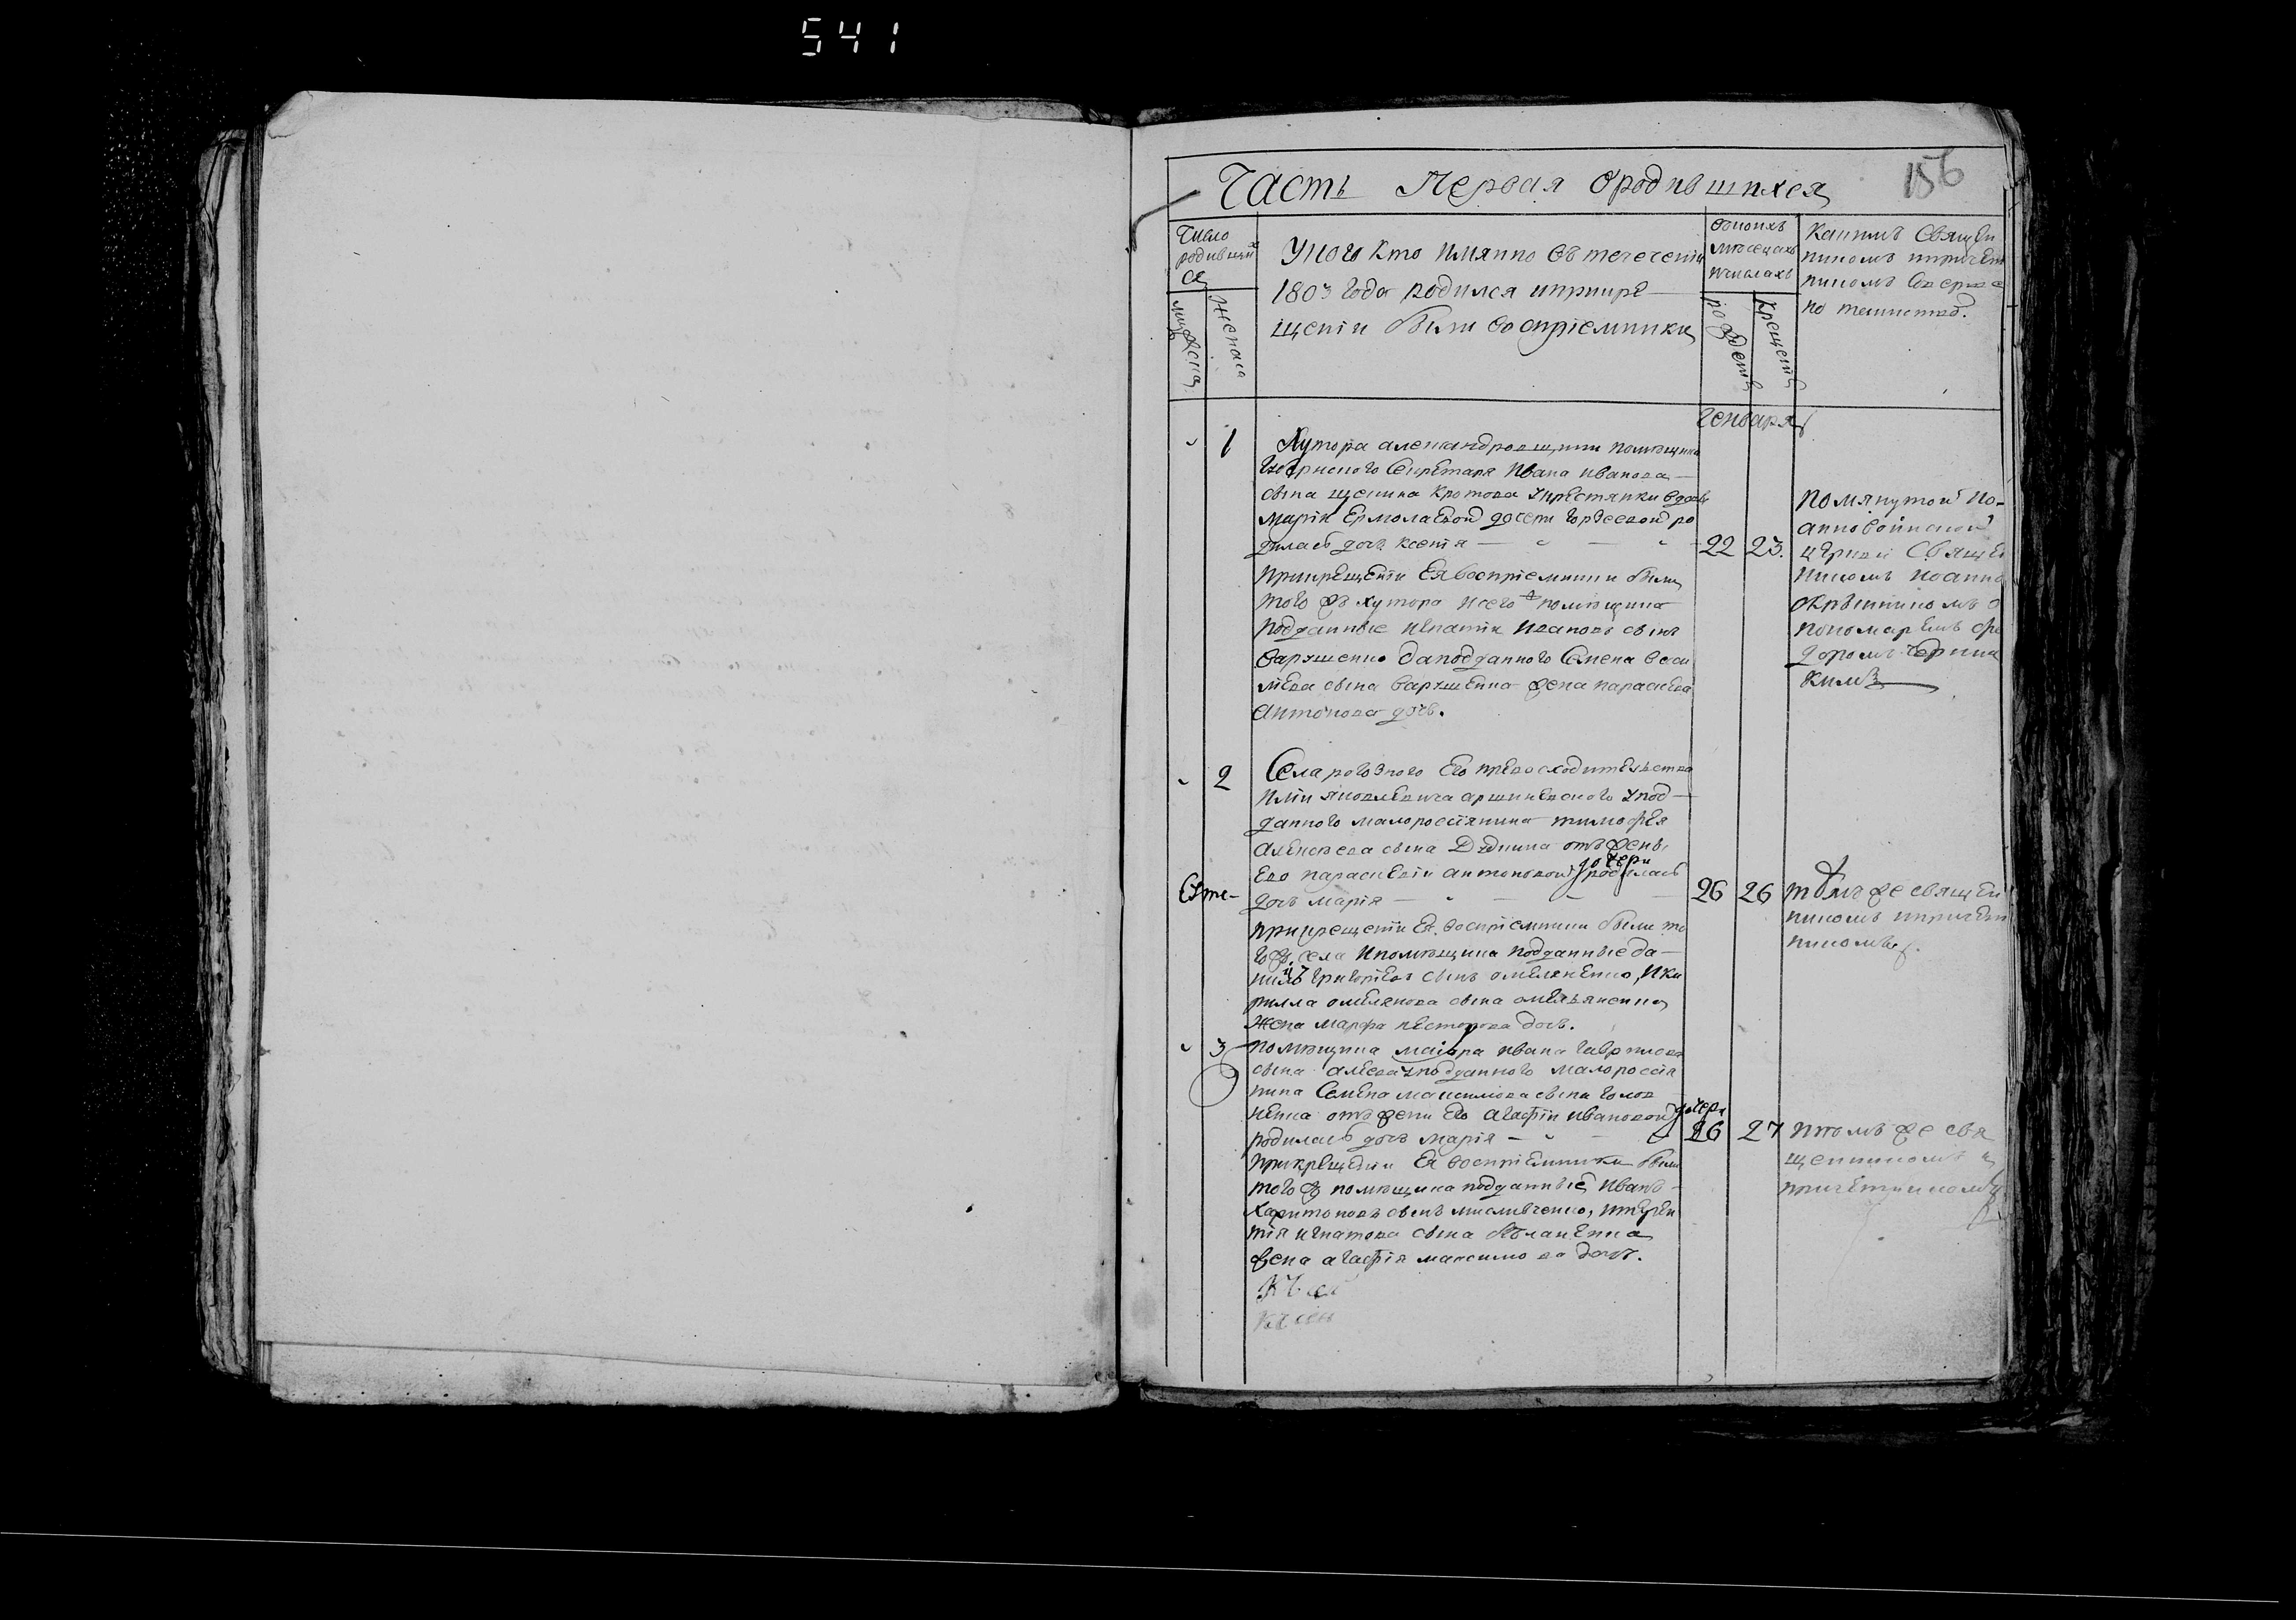 541
156
Часть Первая ородившихся
Число
родивши
ся
мужеска
Женска
Укого Кто Имянно въ течении
1803 года родился иприкре
щении были воспріемники
вкоихъ
мѣсецахъ
ичислахъ
рожденїя
Крещенїя
Какимъ Священ
никомъ ипричет
никомъ Соверше
но таинство.
Генваря
1
Хутора александровщини помѣщика
Секретаря Ивана иванова
сына щекина кротова укрестянки вдовы
маріи Ермолаевой дочери гордеевой ро
дилась дочь ксенїя
22 23.
прикрещеніи Ея воспріемники были
того жъ хутора исего помѣщика
подданные игнатїи Ивановъ сынъ
варушенко да подданного Семена васи
лїева сына варушенка жена параскева
Антонова дочь.
помянутой Іо-
анновоинской
церкви Священ
никомъ Іоанно
пономаремъ фео
доромъ черни
кимъ
2
Села рогозного Его превосходителства
Ильи яковлевича аршиневского упод
данного малоросіянина тимофея
Алексѣева сына Дудника отъ жены
Его параскевіи антоновой дочери родилась
дочь марія
26 26
прикрещеніи Ея воспріемники были то
гожъ села Ипомѣщика подданные да
нилъ григорїевъ сынъ омеляненко, Ики
рилла омелянова сына омельяненка
Жена марфа несторова дочь.
темъже священ
никомъ ипричет
никомъ.
3
помѣщика маіора ивана гаврилова
сына алева уподданного малоросія
нина Семена максимова сына голов
ненка отъ жени Его агафїи ивановой дочери
родилась дочь марія
26 27
прикрещеніи Ея воспріемники были
того жъ помѣщика подданные Иванъ
Харитоновъ сынъ мисливченко, итерен
тия игнатова сына
жена агафїя максимова дочь.
итемъ же свя
щенникомъ и
причетникомъ